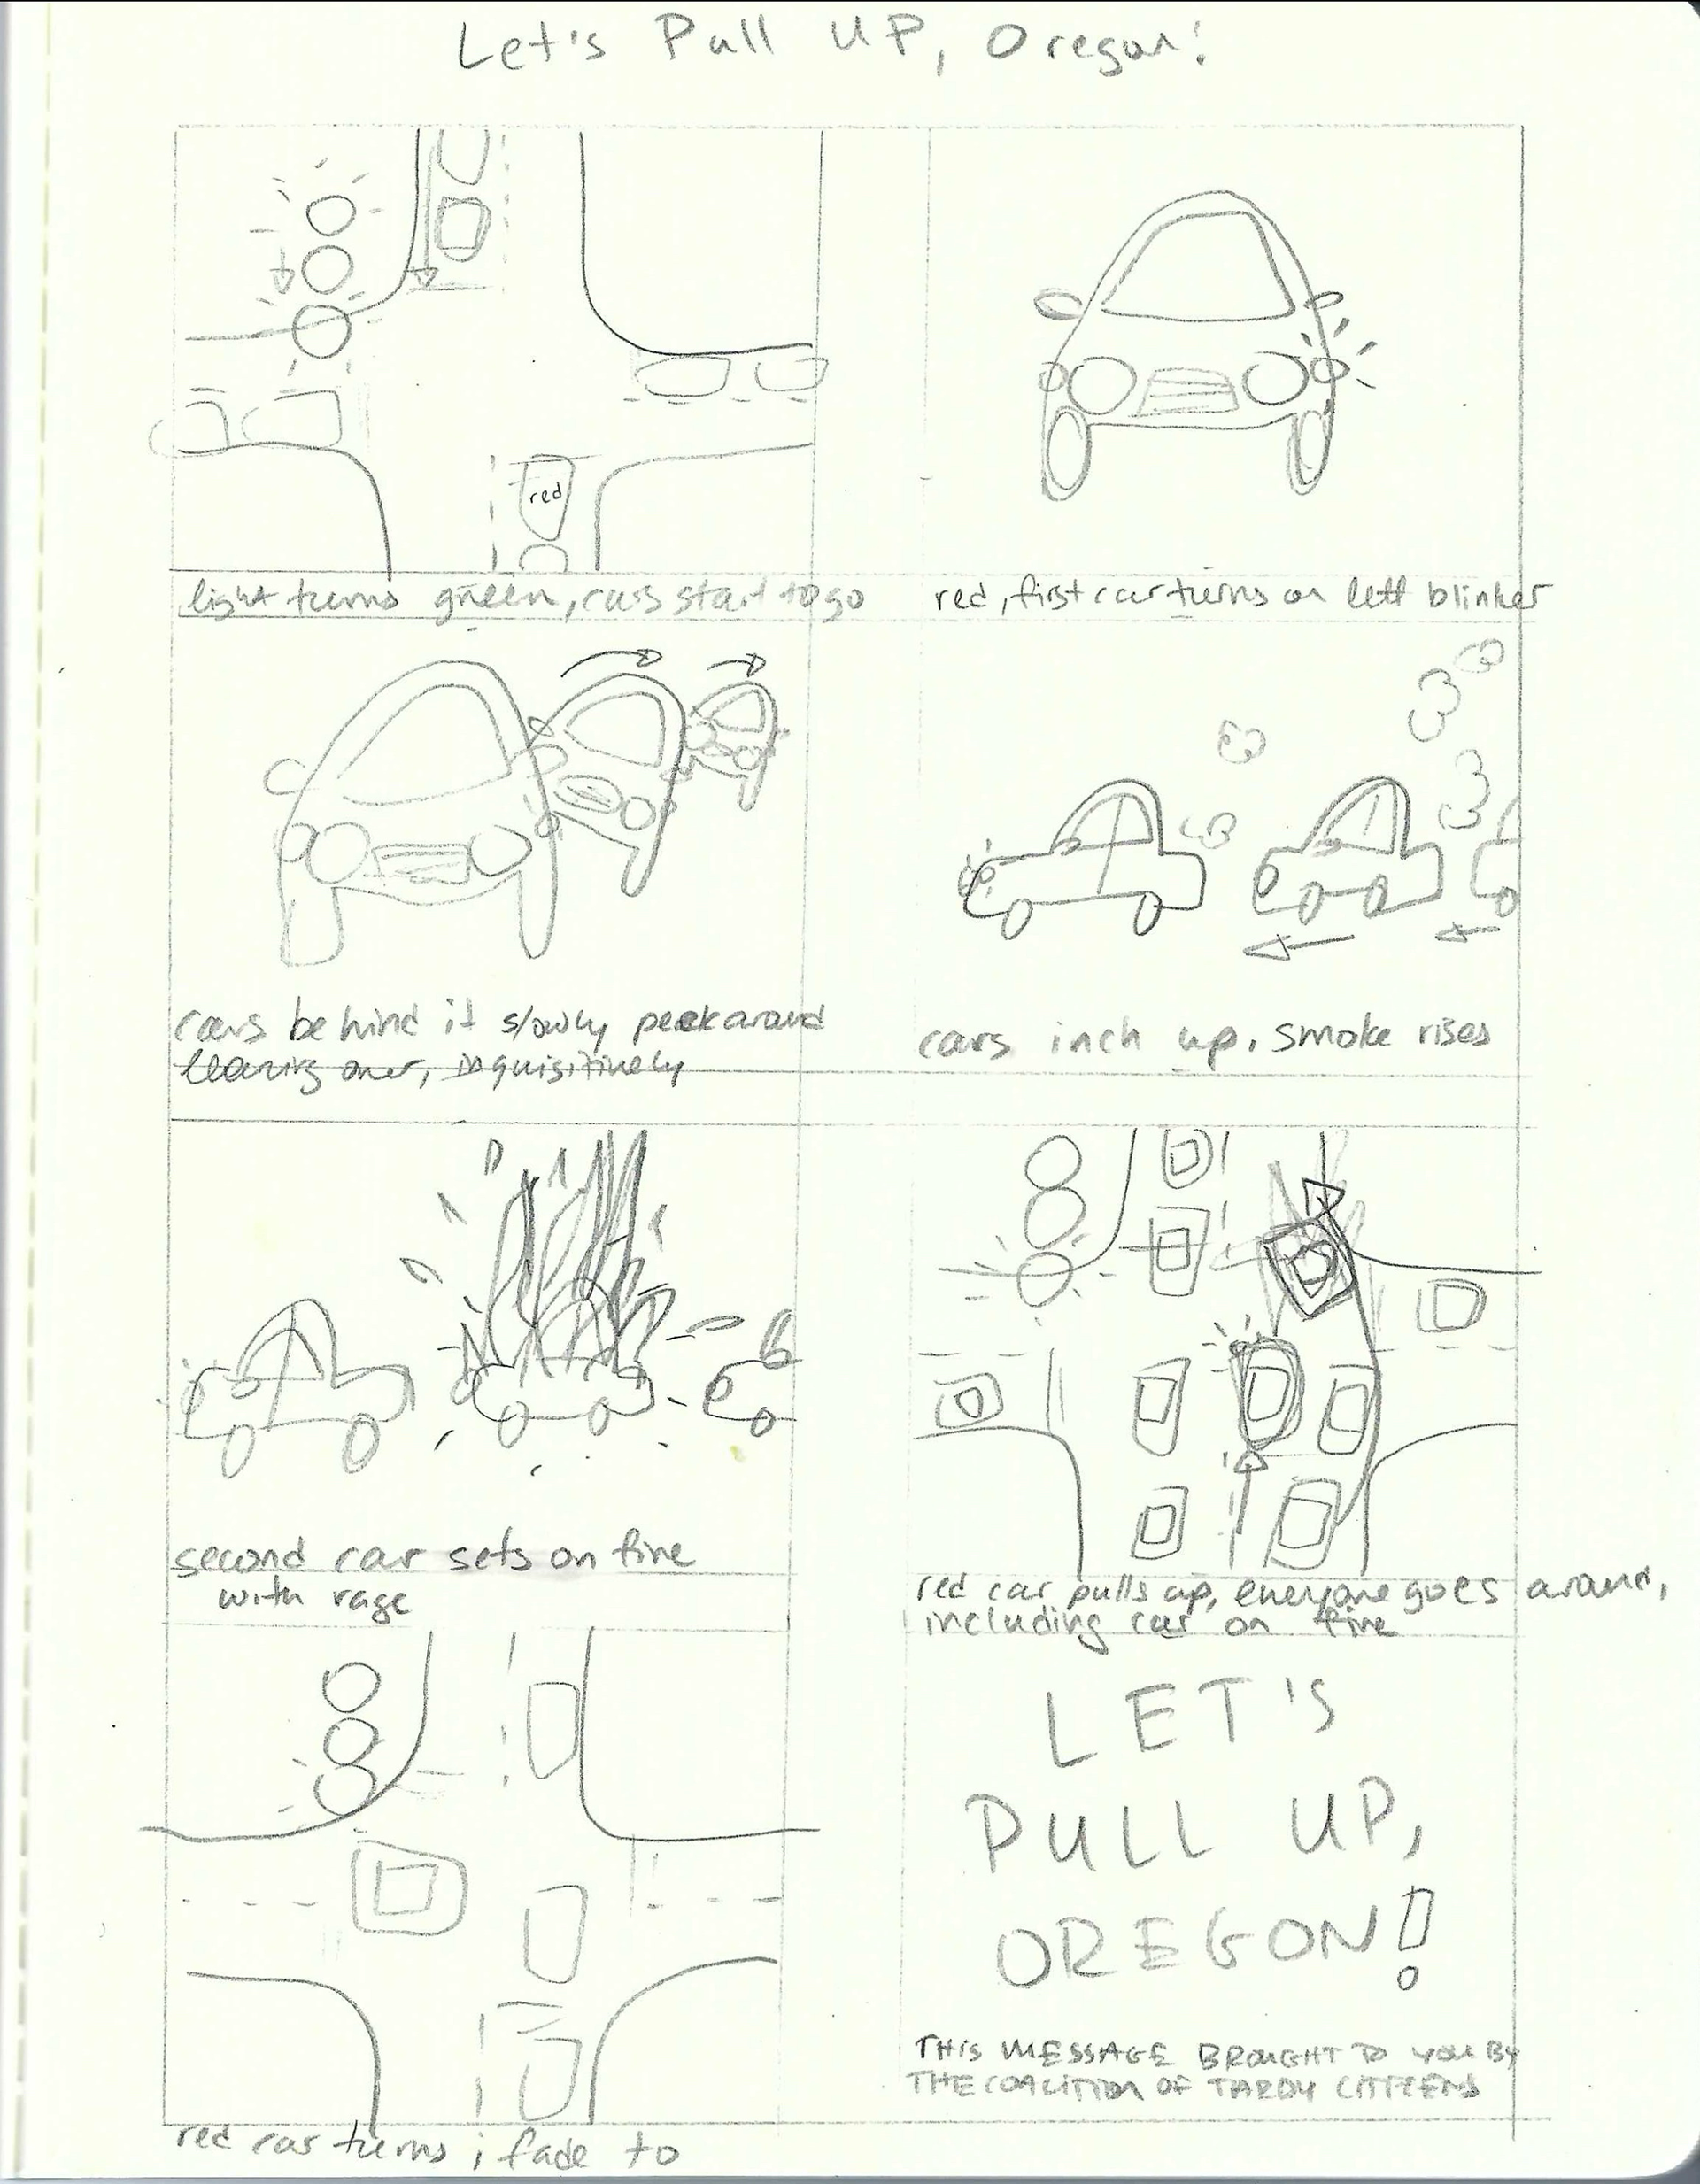 Let's Pull UP, Oregon!
red
light turns green, cars start to go
red, first car turns on left blinker
cars behind it slowly peek around
leaning over, inquisitively
cars inch up. smoke rises
second car sets on fire
with rage
red car pulls up, everyone goes around,
including car on fire
LET'S
PULL UP,
OREGON!
THIS MESSAGE BROUGHT TO YOU BY
THE COALITION OF TARDY CITIZENS
red car turns; fade to